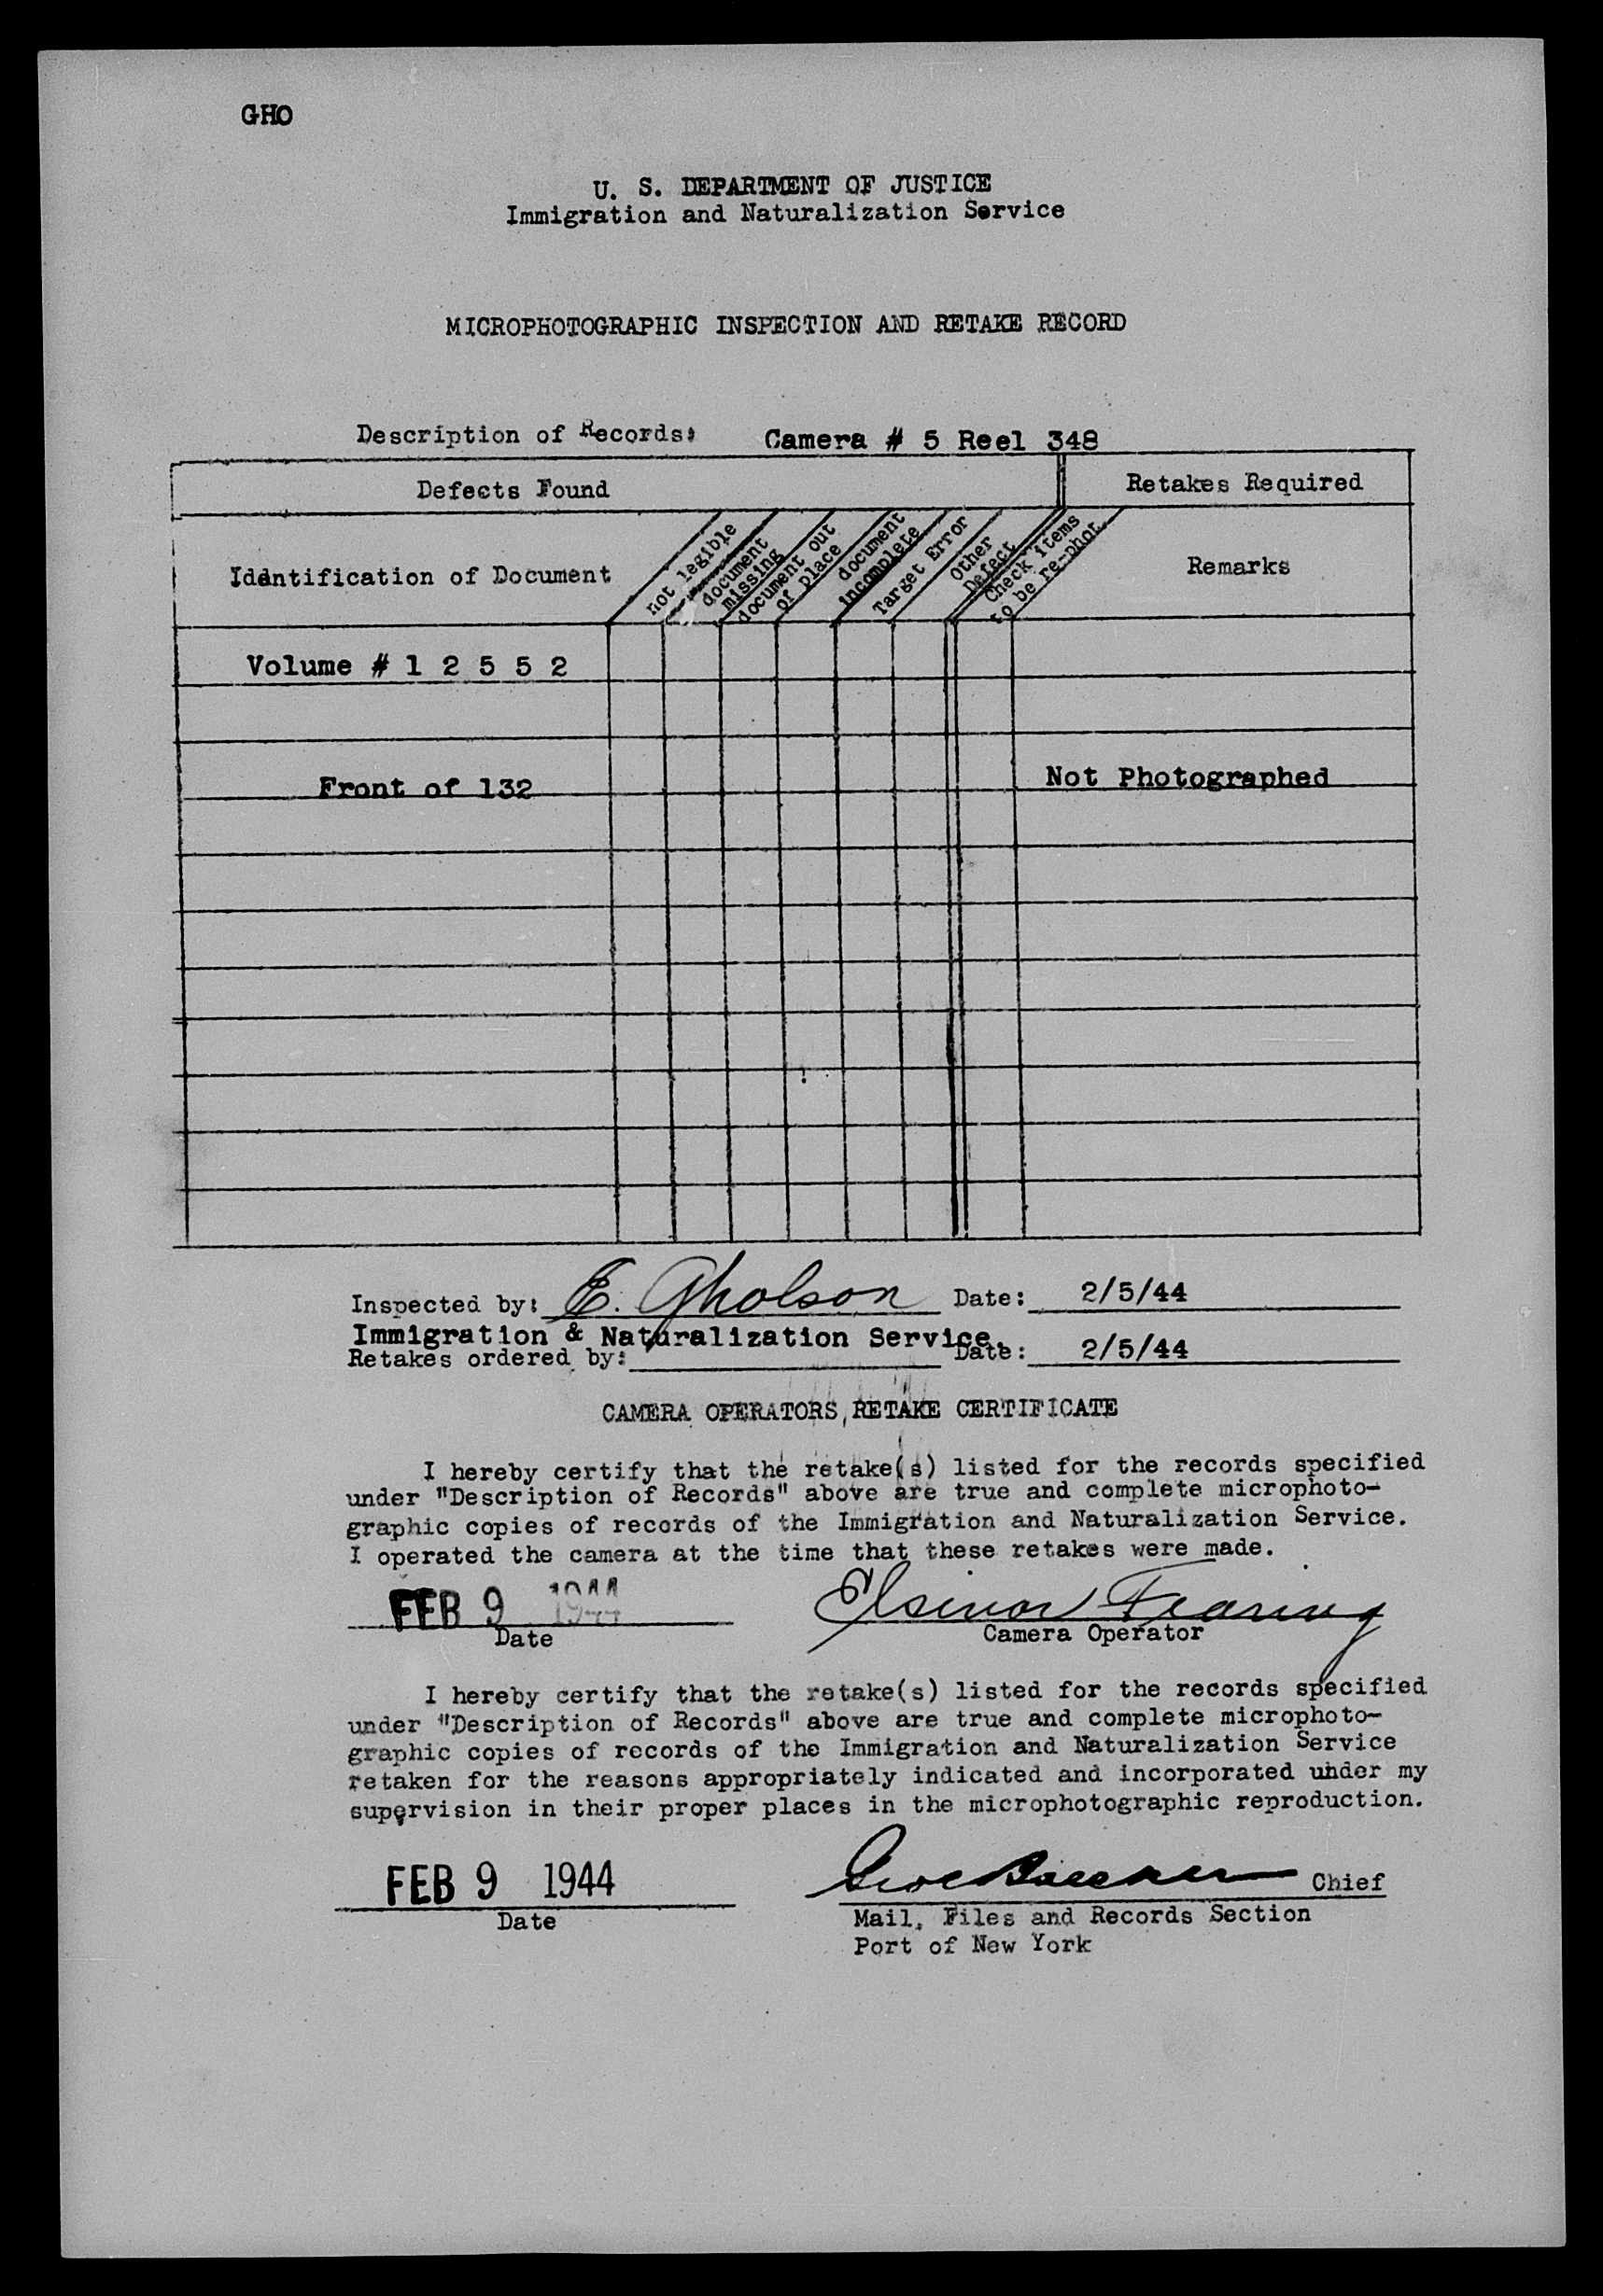 GHO
U. S. DEPARTMENT OF JUSTICE
Immigration and Naturalization Service
MICROPHOTOGRAPHIC INSPECTION AND RETAKE RECORD
Description of Records: Camera # 5 Reel 348
Defects Found Retakes Required
Idéntification of Document
not legible
document missing
document out of place
document incomplete
Target Error
Other Defect
Check items to be re-phot.
Remarks
Volume # 1 2 5 5 2
Front of 132 Not Photographed
Inspected by: E. Gholson Date: 2/5/44
Immigration & Naturalization Service.
Retakes ordered by: Date: 2/5/44
CAMERA OPERATORS RETAKE CERTIFICATE
I hereby certify that the retake(s) listed for the records specified
under "Description of Records" above are true and complete microphoto-
graphic copies of records of the Immigration and Naturalization Service.
I operated the camera at the time that these retakes were made.
FEB 9 1944 Elsinor Fearing
Date Camera Operator
I hereby certify that the retake(s) listed for the records specified
under "Description of Records" above are true and complete microphoto-
graphic copies of records of the Immigration and Naturalization Service
retaken for the reasons appropriately indicated and incorporated under my
supervision in their proper places in the microphotographic reproduction.
FEB 9 1944 Chief
Date Mail, Files and Records Section
Port of New York